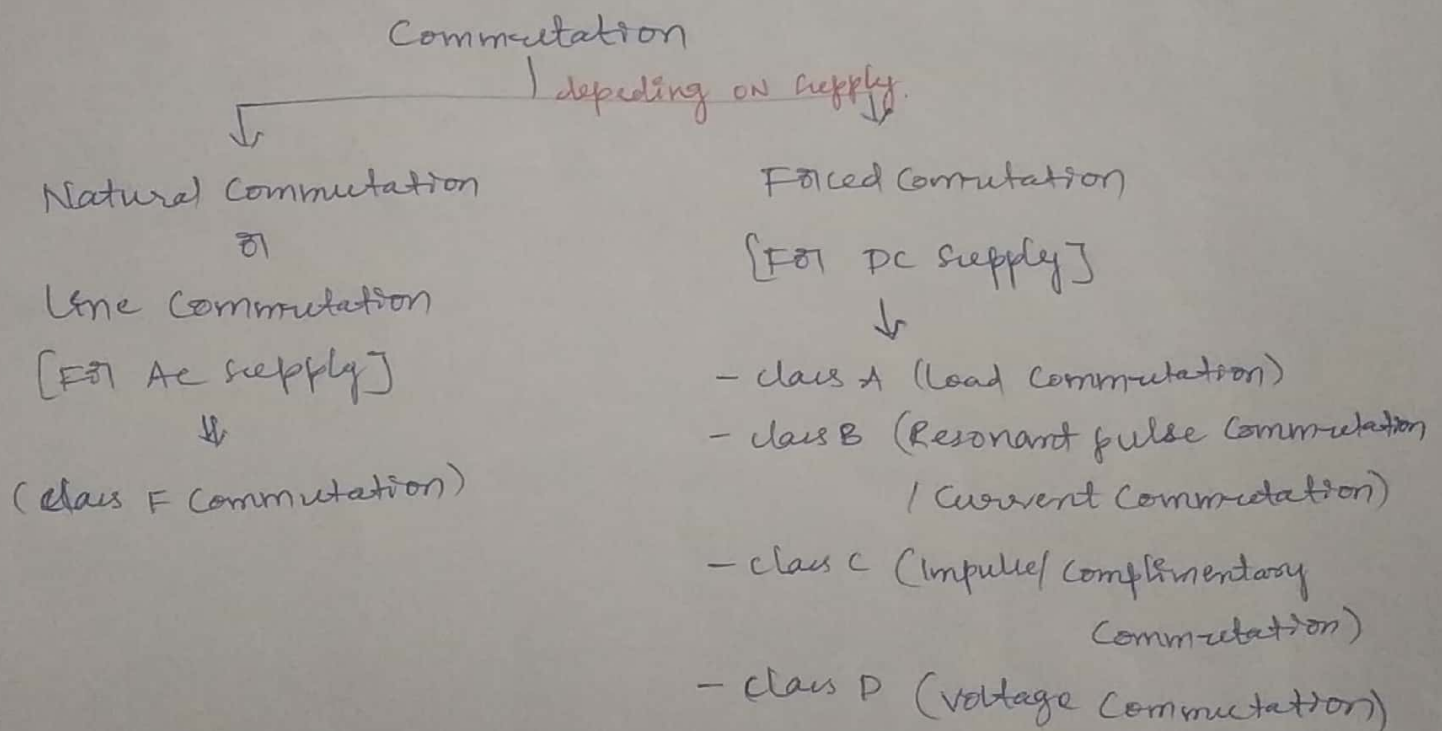 Commutation
depeding ON supply.
Natural Commutation
or
Line Commutation
[For AC supply]
(class F Commutation)
Forced Commutation
[For DC supply]
- class A (Load Commutation)
- class B (Resonant pulse Commutation
/ Current Commutation)
- class C (Impulse/ Complimentary
Commutation)
- class D (Voltage Commutation)